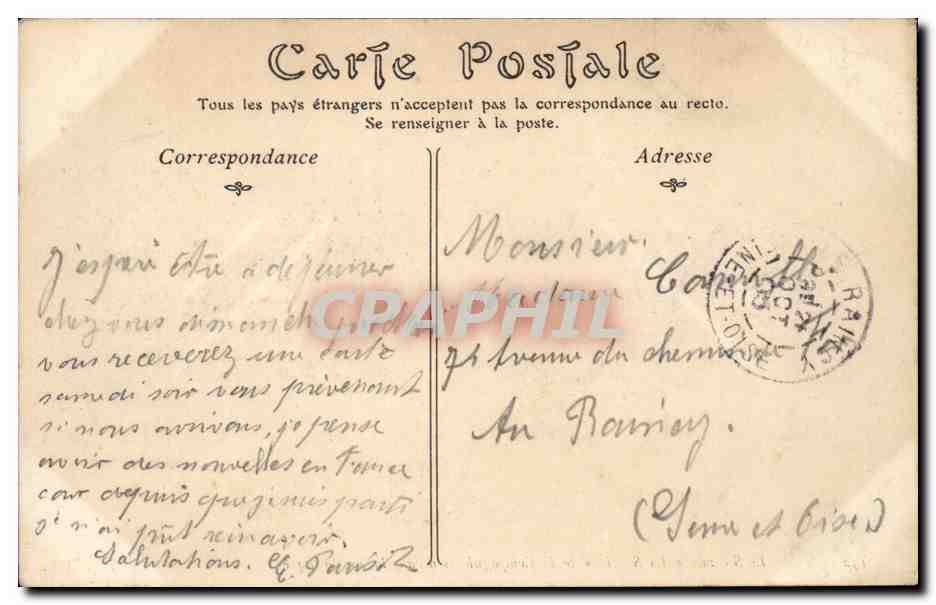 Carte Postale
Tous les pays étrangers n'acceptent pas la correspondance au recto.
Se renseigner à la poste.
Correspondance
Adresse
J'espère être à dejeuner
chez vous dimanche
vous receverez une carte
samedi soir vous prévenant
si nous arrivons, je pense
avoir des nouvelles en France
car depuis que je suis parti
je n'ai pût rein avoir.
Salutations.
Monsieur
Madame
74 Avenue du chemin de
Au Raincy.
(Seine et Oise)
LE RAINCY
SEINE-ET-OISE
CPARPHIL